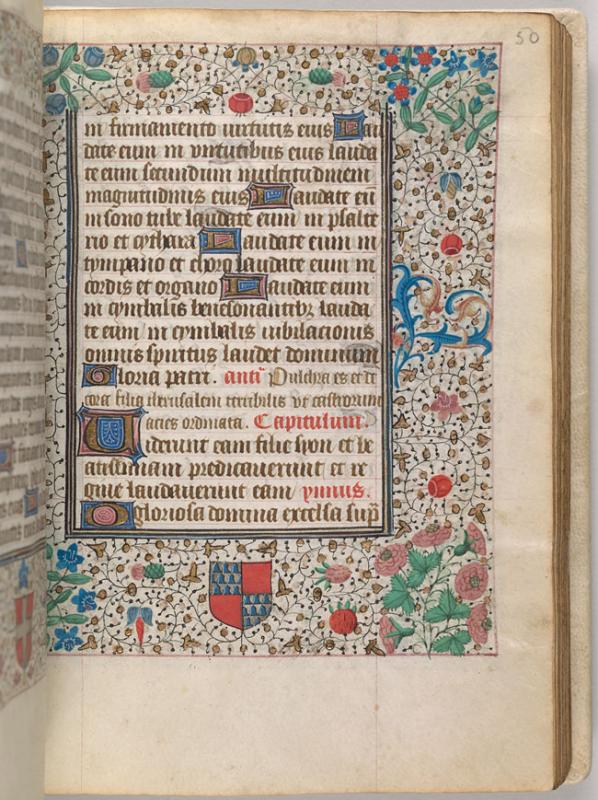 50
in firmamento uirtutis eius Lau
date eum in virtutibus eius lauda
te eum secundum multitudinem
magnitudinis eius Laudate eū
in sono tube laudate eum in psalte
rio et cythara Laudate eum in
tympano et choro laudate eum in
cordis et organo Laudate eum
in cymbalis benesonantibꝫ lauda
te eum in cymbalis iubilacionis
omnis spiritus laudet dominum
Gloria patri. antī Pulchra es et de
cora filia iherusalem terribilis vt castrorum
acies ordinata. Capitulum.
Uiderunt eam filie syon et be
atissimam predicauerunt et re
gine laudauerunt eam ymnus.
O gloriosa domina excelsa sup̄